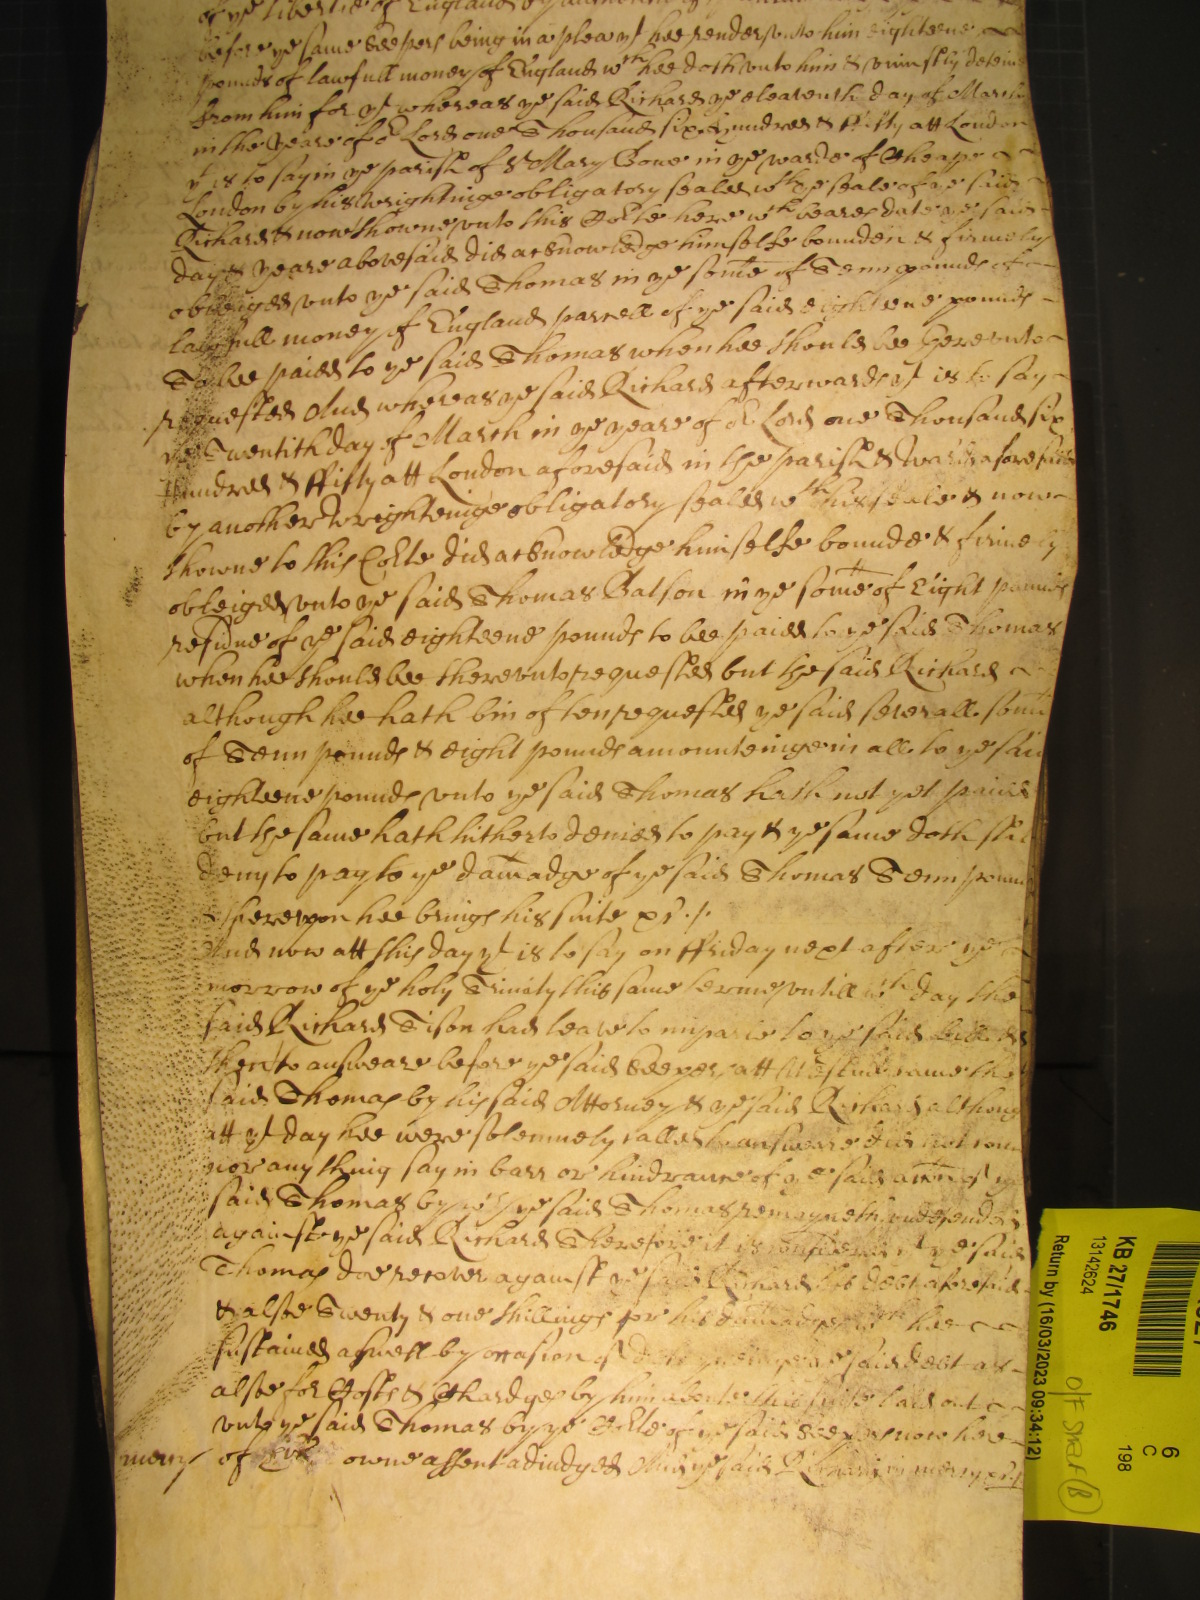 of ye libertie of England by
before ye same Keepers being in a plea yt hee render vnto him eighteene
pounds of lawfull money of England wch hee doth vnto him & vniustly deteine
from him for yt whereas ye said Richard ye eleaventh day of March
in the yeare of or Lord one Thousand six hundred & fifty att London
yt is to say in ye parish of St Mary Bowe in ye warde of Cheape
London by his wrightinge obligatory sealed wth ye seale of ye said
Richard & now showne vnto this Corte here wch beares date ye same
day & yeare abovesaid did acknowledge himselfe bounden & firmely
obleiged vnto ye said Thomas in ye some of Tenn pounds of
lawfull money of England parcell of ye said eighteene pounds
To bee paied to ye said Thomas when hee should bee herevnto
requested And whereas ye said Richard afterwards yt is to say
ye Twentith day of March in ye yeare of or Lord one Thousand six
hundred & ffifty att London aforesaid in the parish & warde aforesaid
by another wrighteinge obligatory sealed wth his seale & now
showne to this Corte did acknowledge himselfe bounde & firmely
obleiged vnto ye said Thomas Batson in ye some of Eight pounds
residue of ye said eighteene pounds to bee paied to ye said Thomas
when hee should bee therevnto requested but the said Richard
although hee hath bin often requested ye said severall
of Tenn pounds & eight pounds amounteinge in all to ye said
eighteene pounds vnto ye said Thomas hath not yet paied
but the same hath hitherto denied to pay & ye same doth
deny to pay to ye damadge of ye said Thomas Tenn
hereupon hee brings his suite
And now att this day yt is to say on ffriday next after ye
morrow of ye holy Trinity this same terme vntill wch day the
said Richard Tison had leave to imparle to ye said
then to answeare before ye said Keepers att the
said Thomas by his said Attorney & ye said Richard
att yt day hee were solemnely called to answeare did not
nor any thing say in barr or hindrance of ye said
said Thomas by wch ye said Thomas remayneth
against ye said Richard Therefore it is considered yt ye said
Thomas doe recover against ye said Richard his debt aforesaid
& alsoe Twenty & one shillings for his damadges wch hee
sustained aswell by occasion of ye said debt as
alsoe for Costs & Chardges by him about this suite laid out
vnto ye said Thomas by ye Corte of ye said Keepers now here
mercy of owne assent adiudged And ye said Richard in mercy
KB 27/1746
13142624
Return by (16/03/2023 09:34:12)
6
C
198